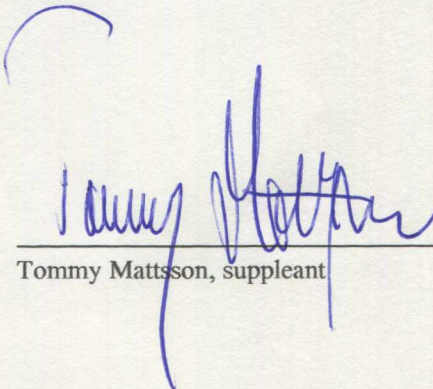 Tommy Mattsson
Tommy Mattsson, suppleant